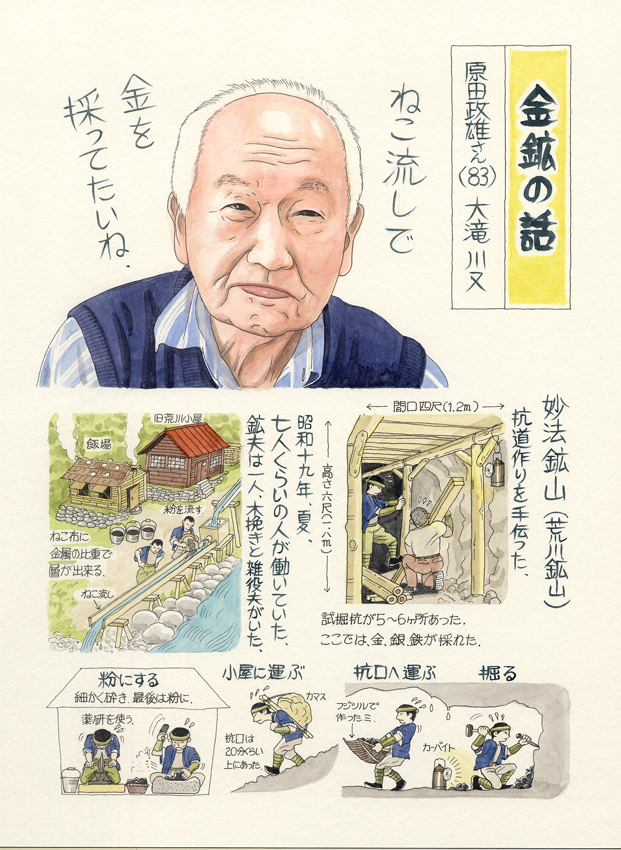 金鉱の話
原田政雄さん(83) 大滝 川又
ねこ流しで
金を
採ってたいね.
妙法鉱山(荒川鉱山)
抗道作りを手伝った、
間口四尺(1.2m)
高さ六尺(一.八m)
試掘抗が5~6ヶ所あった.
ここでは、金、銀、鉄が採れた.
昭和十九年、夏、
七人くらいの人が働いていた、
鉱夫は一人、木挽きと雑役夫がいた、
旧荒川小屋
飯場
粉を流す
ねこ布に
金属の比重で
層が出来る、
ねこ流し
掘る
カーバイト
抗口へ運ぶ
フジツルで
作ったミ、
小屋に運ぶ
カマス
抗口は
20分くらい
上にあった、
粉にする
細かく砕き、最後は粉に、
薬研を使う、